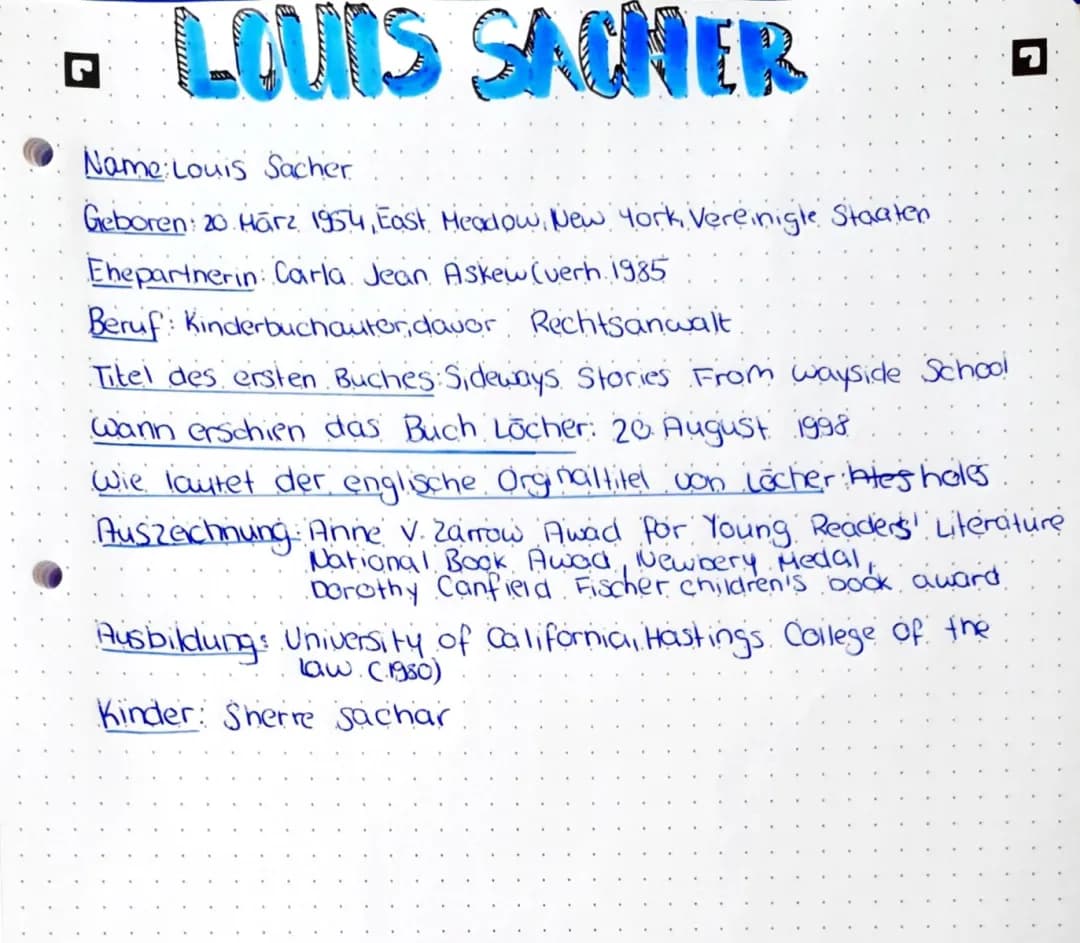 LOUIS SACHER
Name: Louis Sacher
Geboren: 20. März 1954, East Meadow, New York, Vereinigle Staaten
Ehepartnerin: Carla Jean Askew (verh. 1985
Beruf: Kinderbuchautor, davor Rechtsanwalt
Titel des ersten Buches: Sideways Stories From Wayside School
Wann erschien das Buch Löcher: 20 August 1998
Wie lautet der englische Orginaltitel von Löcher: holes
Auszeichnung: Anne V. Zarrow Awad for Young Readers' Literature
National Book Awad, Newbery Medal,
Dorothy Canfield Fischer children's book award
Ausbildung: University of California, Hastings College of the
law (1980)
Kinder: Sherre sachar